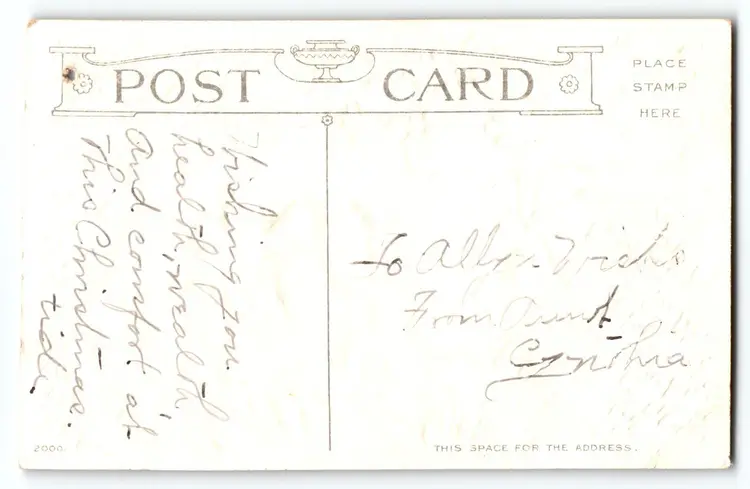 POST CARD
PLACE
STAMP
HERE
Wishing you
health, wealth
and comfort at
This Christmas.
tide
To
From Aunt
Cynthia
2000.
THIS SPACE FOR THE ADDRESS.